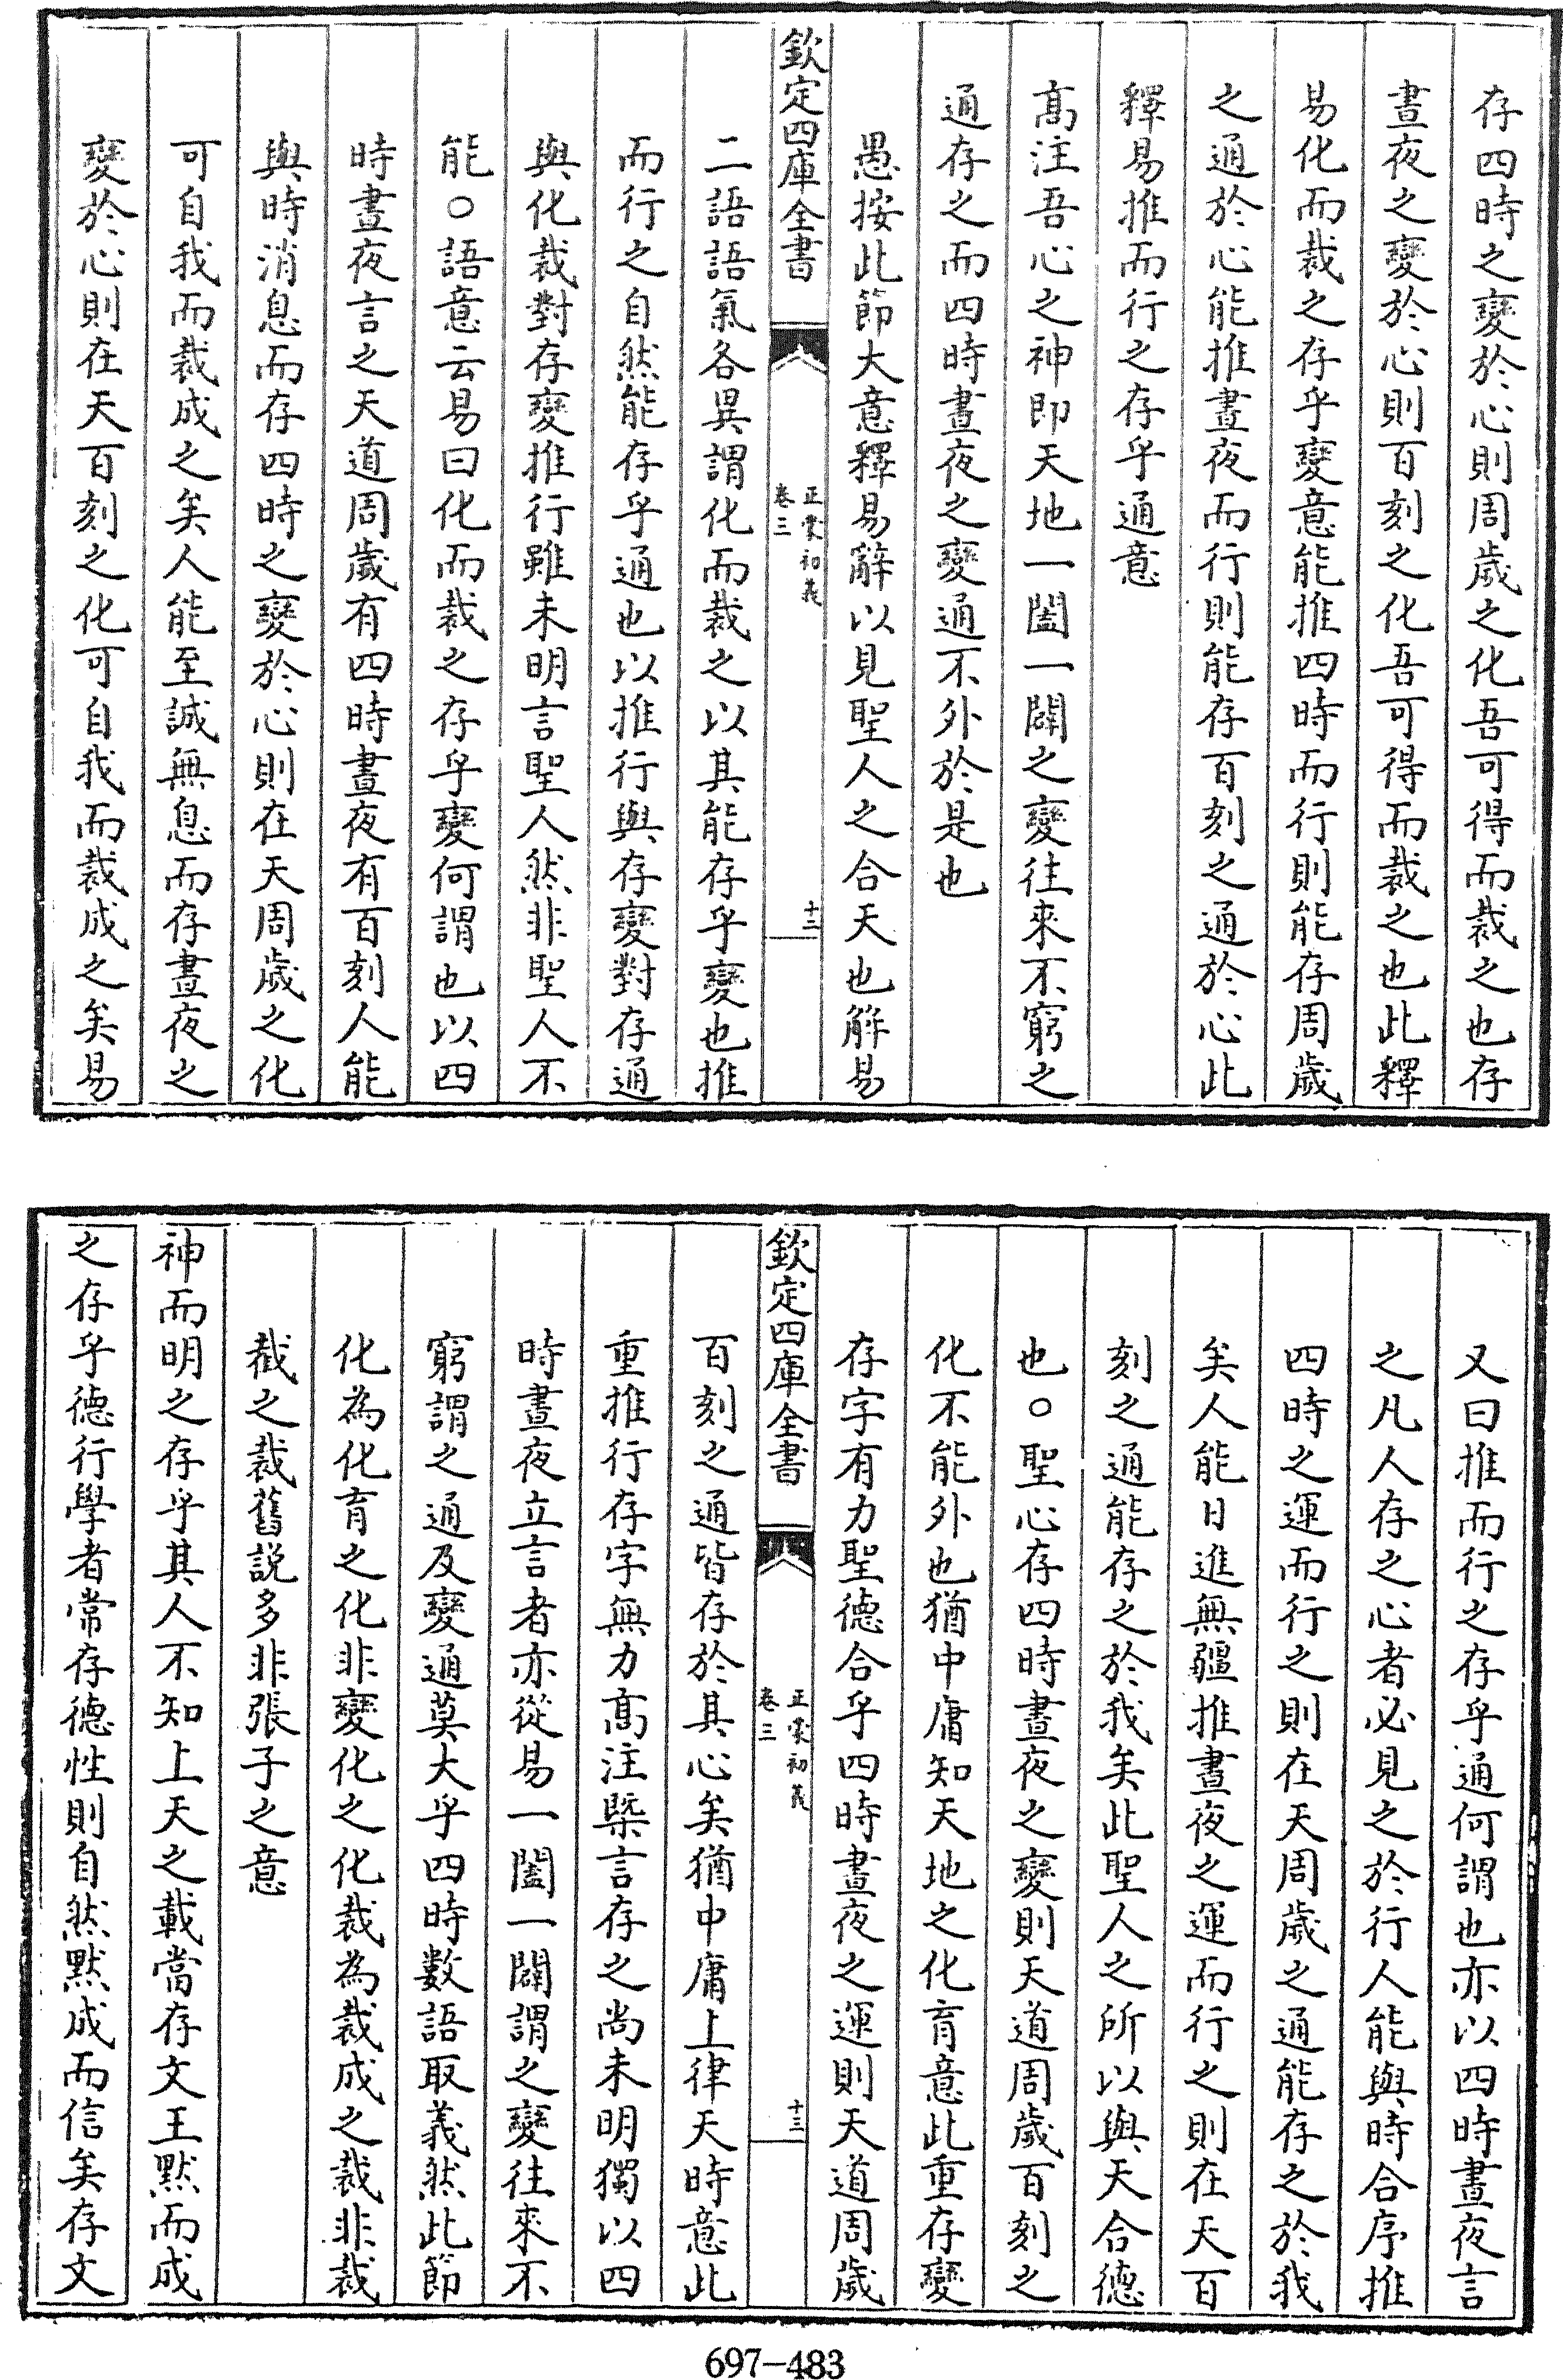 存四時之變於心則周歲之化吾可得而裁之也存
晝夜之變於心則百刻之化吾可得而裁之也此釋
易化而裁之存乎變意能推四時而行則能存周歲
之通於心能推晝夜而行則能存百刻之通於心此
釋易推而行之存乎通意
髙注吾心之神即天地一闔一闢之變往來不窮之
通存之而四時晝夜之變通不外於是也
愚按此節大意釋易辭以見聖人之合天也解易
欽定四庫全書
正蒙初義
卷三
十二
二語語氣各異謂化而裁之以其能存乎變也推
而行之自然能存乎通也以推行與存變對存通
與化裁對存變推行雖未明言聖人然非聖人不
能○語意云易曰化而裁之存乎變何謂也以四
時晝夜言之天道周歲有四時晝夜有百刻人能
與時消息而存四時之變於心則在天周歲之化
可自我而裁成之矣人能至誠無息而存晝夜之
變於心則在天百刻之化可自我而裁成之矣易
又曰推而行之存乎通何謂也亦以四時晝夜言
之凡人存之心者必見之於行人能與時合序推
四時之運而行之則在天周歲之通能存之於我
矣人能日進無疆推晝夜之運而行之則在天百
刻之通能存之於我矣此聖人之所以與天合德
也○聖心存四時晝夜之變則天道周歲百刻之
化不能外也猶中庸知天地之化育意此重存變
存字有力聖德合乎四時晝夜之運則天道周歲
欽定四庫全書
正蒙初義
卷三
十三
百刻之通皆存於其心矣猶中庸上律天時意此
重推行存字無力髙注槩言存之尚未明獨以四
時晝夜立言者亦從易一闔一闢謂之變往來不
窮謂之通及變通莫大乎四時數語取義然此節
化為化育之化非變化之化裁為裁成之裁非裁
截之裁舊説多非張子之意
神而明之存乎其人不知上天之載當存文王黙而成
之存乎德行學者常存德性則自然黙成而信矣存文
697-483